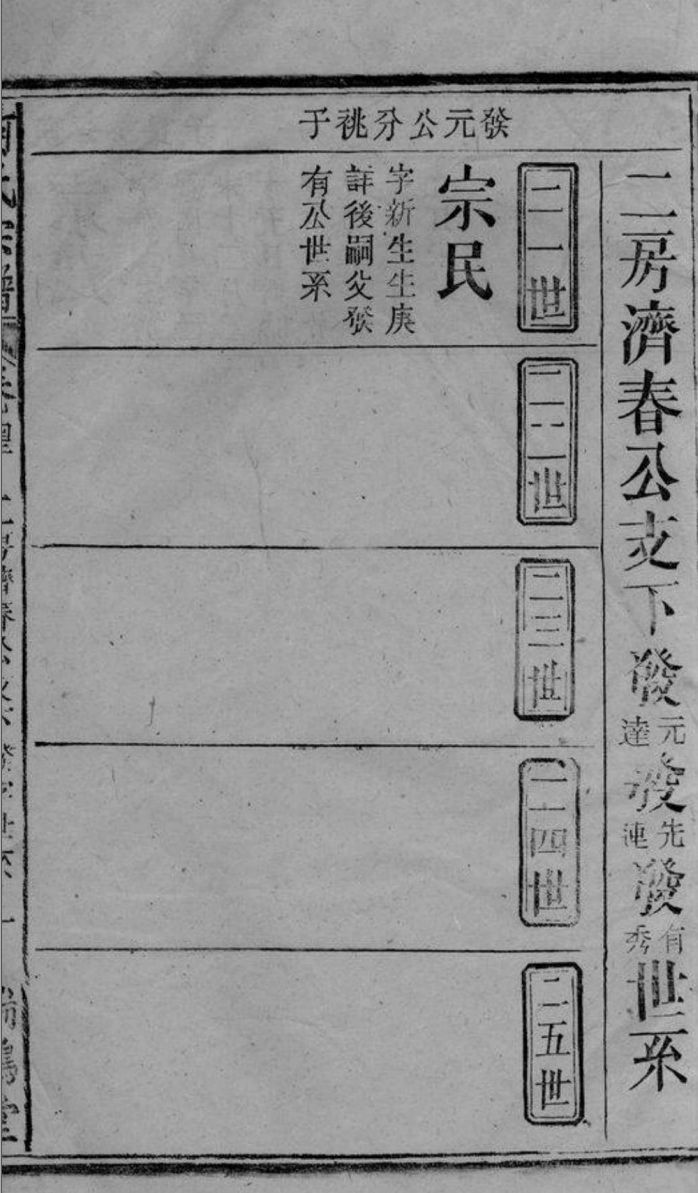 二房濟春公支下發元達發先連發有秀世系
發元公分祧子
二一世
宗民
字新生生庚
詳後嗣父發
有公世系
二二世
二三世
二四世
二五世